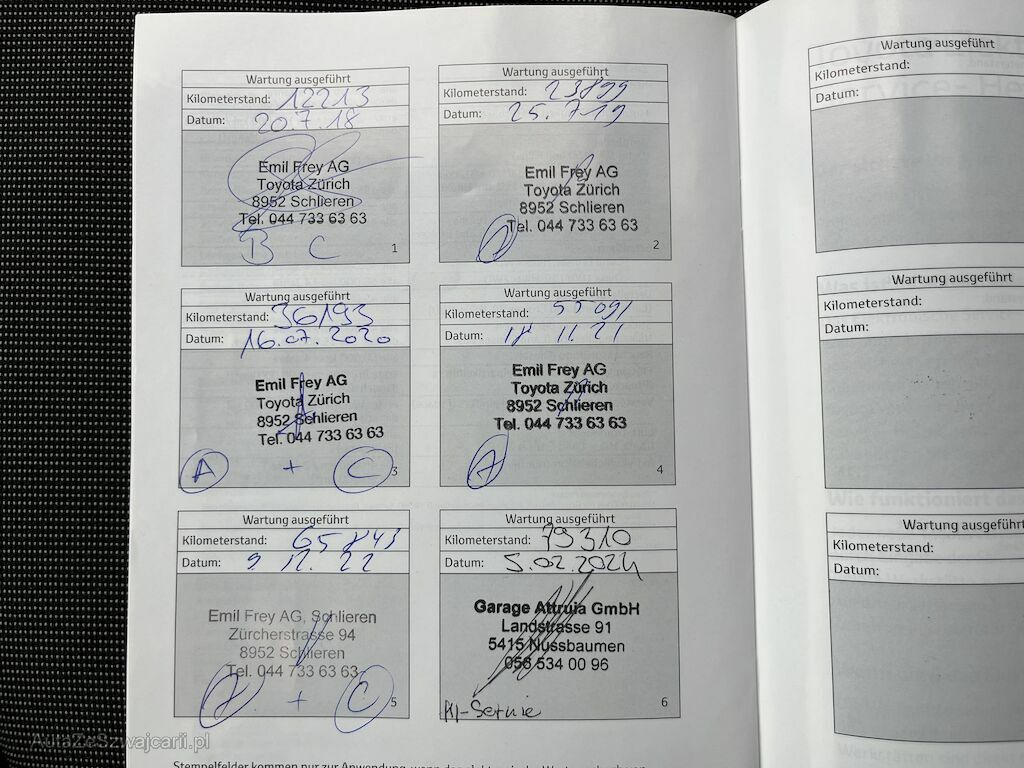 Wartung ausgeführt
Kilometerstand: 12213
Datum: 20.7.18
Emil Frey AG
Toyota Zürich
8952 Schlieren
Tel. 044 733 63 63
B C
1
Wartung ausgeführt
Kilometerstand: 23899
Datum: 25.7.19
Emil Frey AG
Toyota Zürich
8952 Schlieren
Tel. 044 733 63 63
A
2
Wartung ausgeführt
Kilometerstand: 36193
Datum: 16.07.2020
Emil Frey AG
Toyota Zürich
8952 Schlieren
Tel. 044 733 63 63
A + C
3
Wartung ausgeführt
Kilometerstand: 55091
Datum: 18 11.21
Emil Frey AG
Toyota Zürich
8952 Schlieren
Tel. 044 733 63 63
A
4
Wartung ausgeführt
Kilometerstand: 65843
Datum: 9 12. 22
Emil Frey AG, Schlieren
Zürcherstrasse 94
8952 Schlieren
Tel. 044 733 63 63
A + C
5
Wartung ausgeführt
Kilometerstand: 79310
Datum: 5.02.2024
Garage Attruia GmbH
Landstrasse 91
5415 Nussbaumen
056 534 00 96
6
Wartung ausgeführt
Kilometerstand:
Datum:
Wartung ausgeführt
Kilometerstand:
Datum:
Wartung ausgeführt
Kilometerstand:
Datum:
AutaZeSzwajcarii.pl